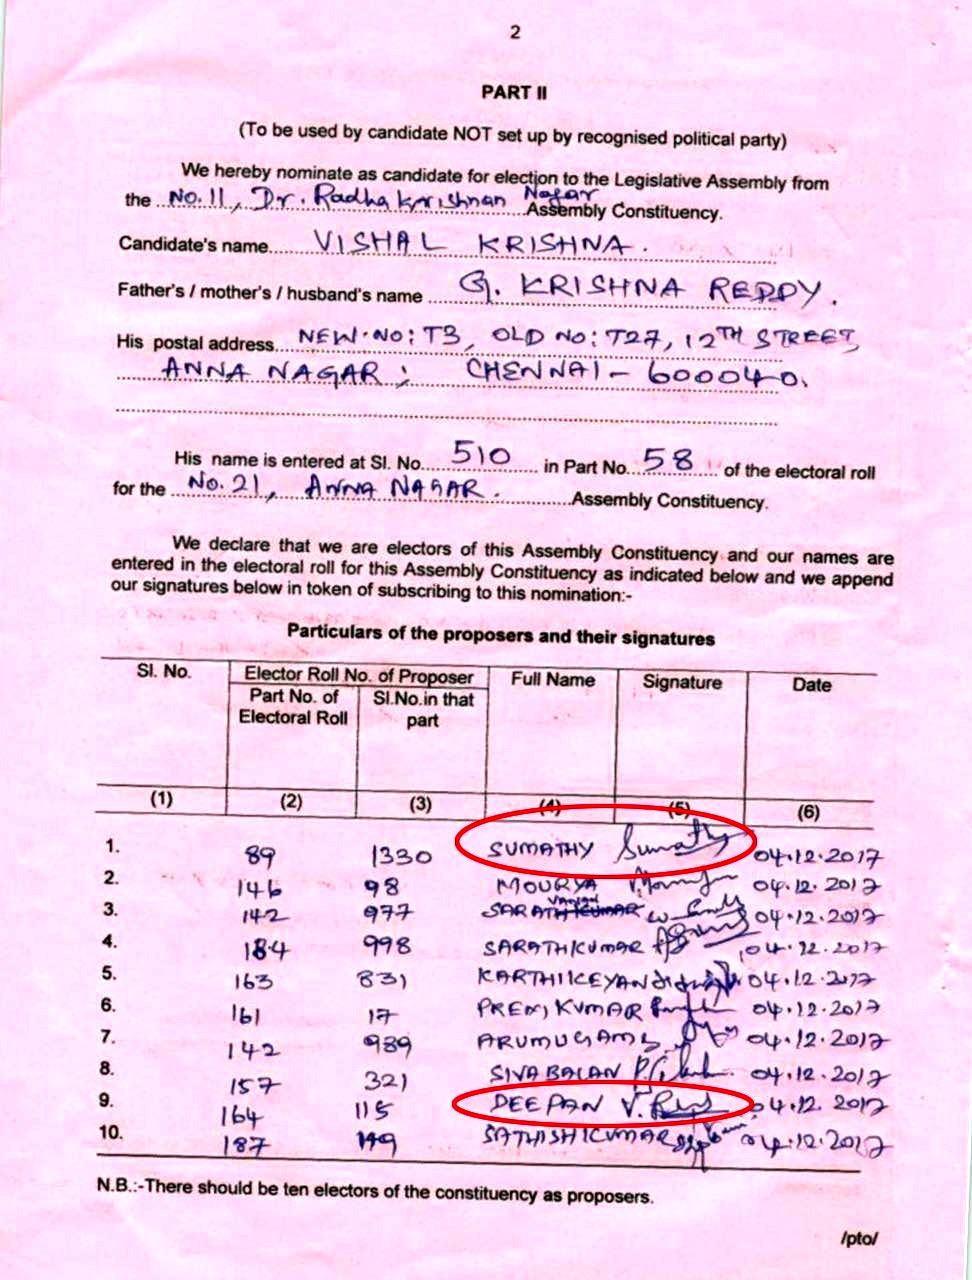 2
PART II
(To be used by candidate NOT set up by recognised political party)
We hereby nominate as candidate for election to the Legislative Assembly from
the No. 11, Dr. Radha Krishnan Nagar Assembly Constituency.
Candidate's name VISHAL KRISHNA.
Father's / mother's / husband's name G. KRISHNA REDDY.
His postal address NEW·NO: T3, OLD NO: T27, 12TH STREET,
ANNA NAGAR; CHENNAI – 600040.
His name is entered at Sl. No. 510 in Part No. 58 of the electoral roll
for the No. 21, ANNA NAGAR. Assembly Constituency.
We declare that we are electors of this Assembly Constituency and our names are
entered in the electoral roll for this Assembly Constituency as indicated below and we append
our signatures below in token of subscribing to this nomination:-
Particulars of the proposers and their signatures
Sl. No. Elector Roll No. of Proposer Full Name Signature Date
Part No. of Electoral Roll Sl.No.in that part
(1) (2) (3) (4) (5) (6)
1. 89 1330 SUMATHY Sumathy 04.12.2017
2. 146 98 MOURYA 04.12.2017
3. 142 977 04.12.2017
4. 184 998 SARATHKUMAR 04.12.2017
5. 163 831 KARTHIKEYAN 04.12.2017
6. 161 17 PREM KUMAR 04.12.2017
7. 142 989 ARUMUGAM 04.12.2017
8. 157 321 SIVABALAN 04.12.2017
9. 164 115 DEEPAN 04.12.2017
10. 187 SATHISHKUMAR 04.12.2017
N.B.:-There should be ten electors of the constituency as proposers.
/pto/